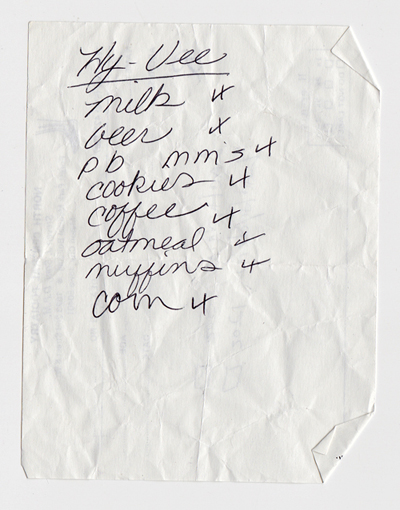 Hy-Vee
milk x
beer x
pb mm's x
cookies x
coffee x
oatmeal x
muffins x
corn x